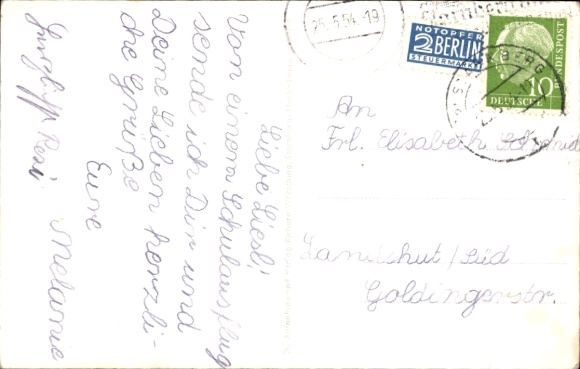 Liebe Liesl!
Von einem Schulausflug
sende ich Dir und
Deine Lieben herzli-
che Grüße
Eure
Melanie
Resi
25.5.54.-19
NOTOPFER
2 BERLIN
STEUERMARKE
DEUTSCHE
BUNDESPOST
10
An
Frl. Elisabeth
Landshut/Süd
Goldingerstr.